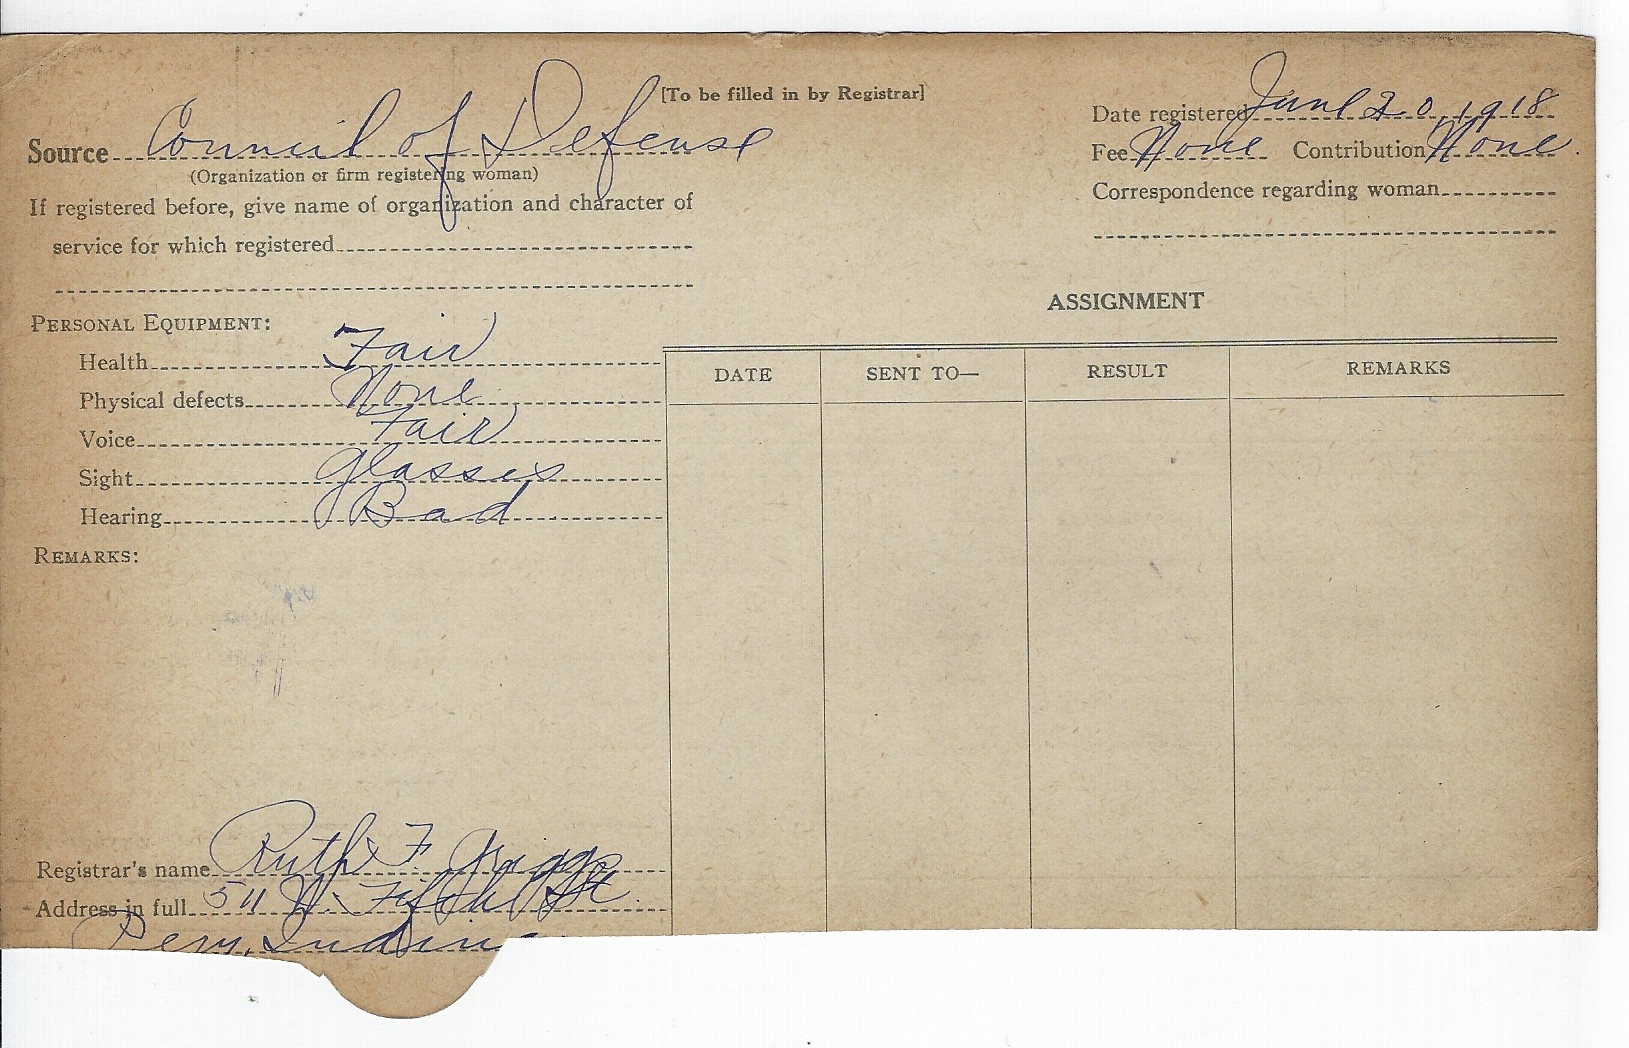 [To be filled in by Registrar]
Date registered June 20, 1918
Source Council of Defense
Fee None Contribution None.
(Organization or firm registering woman)
Correspondence regarding woman
If registered before, give name of organization and character of
service for which registered
ASSIGNMENT
PERSONAL EQUIPMENT:
Health Fair
DATE SENT TO— RESULT REMARKS
Physical defects None
Voice Fair
Sight Glasses
Hearing Bad
REMARKS:
Registrar's name Ruth F. Griggs
Address in full 511 W. Fifth St.
Peru, Indiana